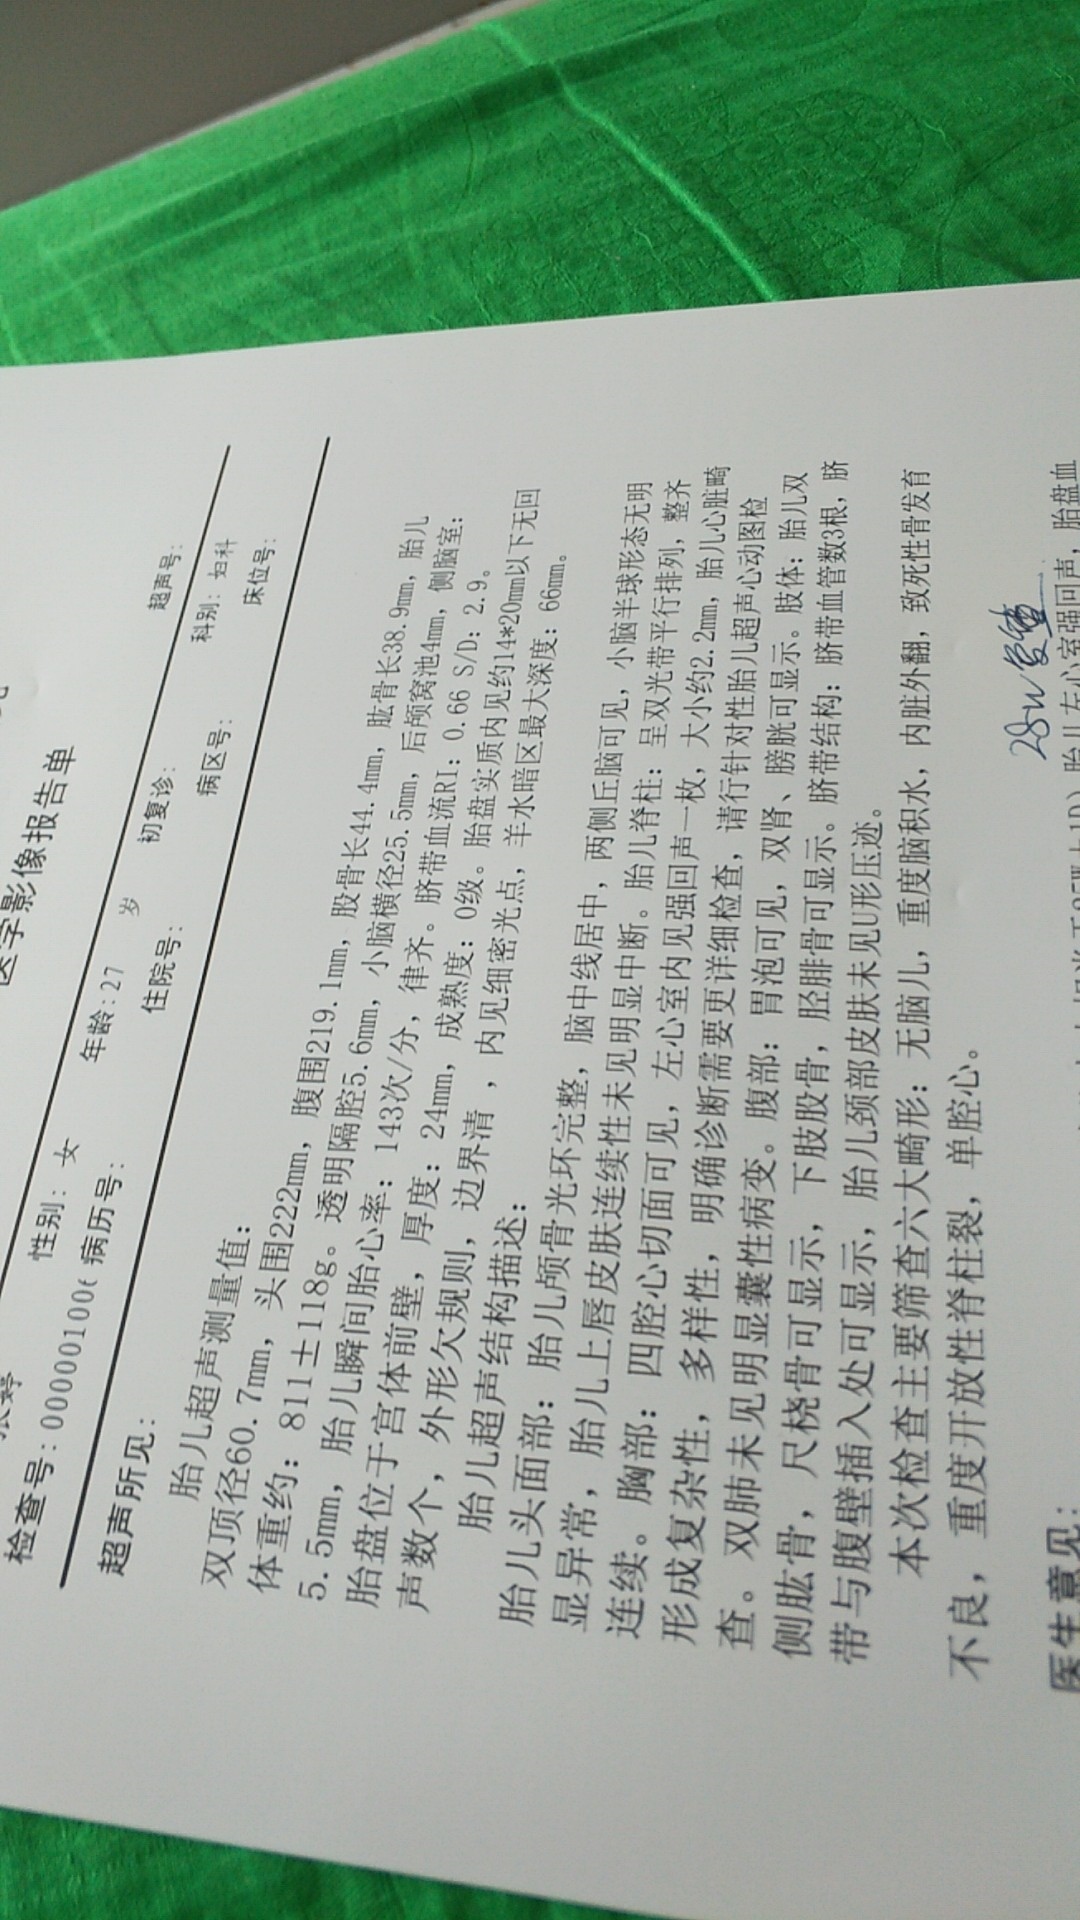 医学影像报告单
检查号:000001000 性别: 女 年龄:27 岁 初复诊: 超声号:
病历号: 住院号: 病区号: 科别: 妇科
床位号:
超声所见:
胎儿超声测量值:
双顶径60.7mm, 头围222mm, 腹围219.1mm, 股骨长44.4mm, 肱骨长38.9mm, 胎儿
体重约: 811±118g。透明隔腔5.6mm, 小脑横径25.5mm, 后颅窝池4mm, 侧脑室:
5.5mm, 胎儿瞬间胎心率: 143次/分, 律齐。脐带血流RI: 0.66 S/D: 2.9。
胎盘位于宫体前壁, 厚度: 24mm, 成熟度: 0级。胎盘实质内见约14*20mm以下无回
声数个, 外形欠规则, 边界清 , 内见细密光点, 羊水暗区最大深度: 66mm。
胎儿超声结构描述:
胎儿头面部: 胎儿颅骨光环完整, 脑中线居中, 两侧丘脑可见, 小脑半球形态无明
显异常, 胎儿上唇皮肤连续性未见明显中断。胎儿脊柱: 呈双光带平行排列, 整齐
连续。胸部: 四腔心切面可见, 左心室内见强回声一枚, 大小约2.2mm, 胎儿心脏畸
形成复杂性, 多样性, 明确诊断需要更详细检查, 请行针对性胎儿超声心动图检
查。双肺未见明显囊性病变。腹部: 胃泡可见, 双肾、膀胱可显示。肢体: 胎儿双
侧肱骨, 尺桡骨可显示, 下肢股骨, 胫腓骨可显示。脐带结构: 脐带血管数3根, 脐
带与腹壁插入处可显示, 胎儿颈部皮肤未见U形压迹。
本次检查主要筛查六大畸形: 无脑儿, 重度脑积水, 内脏外翻, 致死性骨发育
不良, 重度开放性脊柱裂, 单腔心。
28w复查
医生意见:
胎儿左心室强回声, 胎盘血